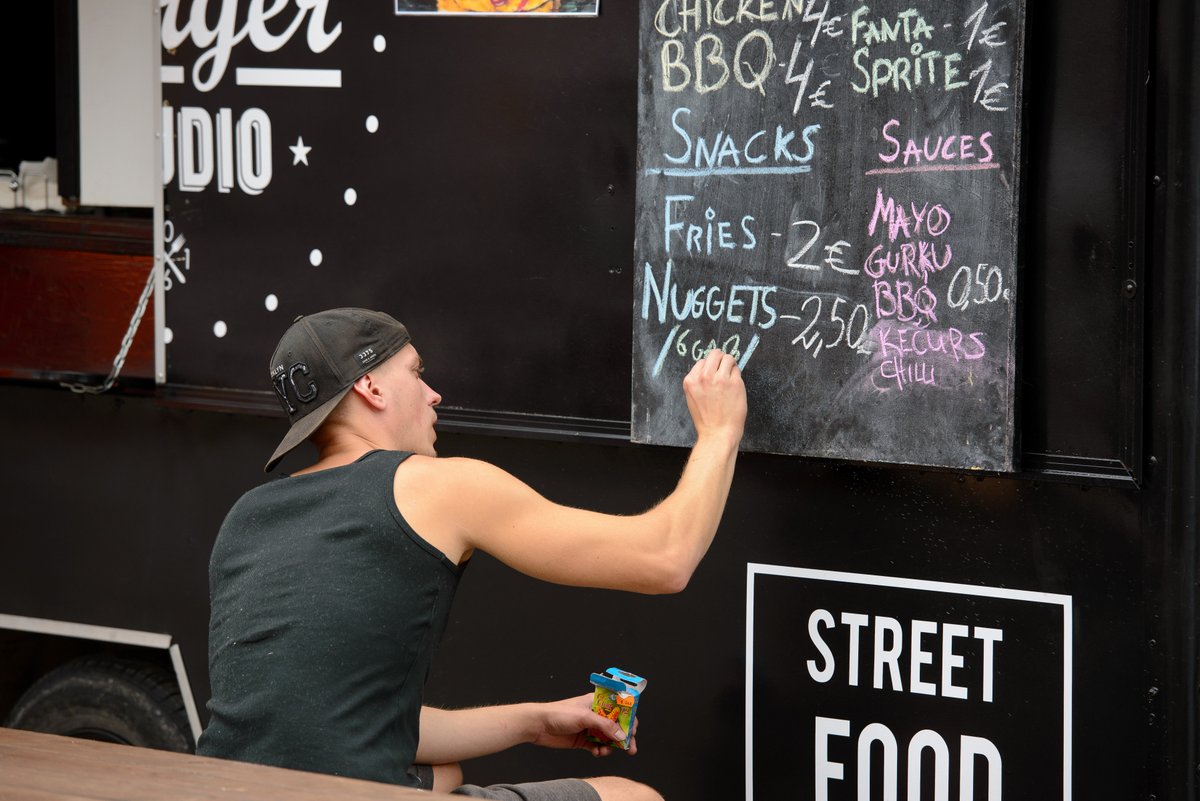 rger
UDIO
CHICKEN 4€
BBQ - 4€
FANTA - 1€
SPRITE 1€
SNACKS
FRIES - 2€
NUGGETS - 2,50
SAUCES
MAYO
GURKU
BBQ
KECUPS
CHILLI
0,50€
YC
STREET
FOOD